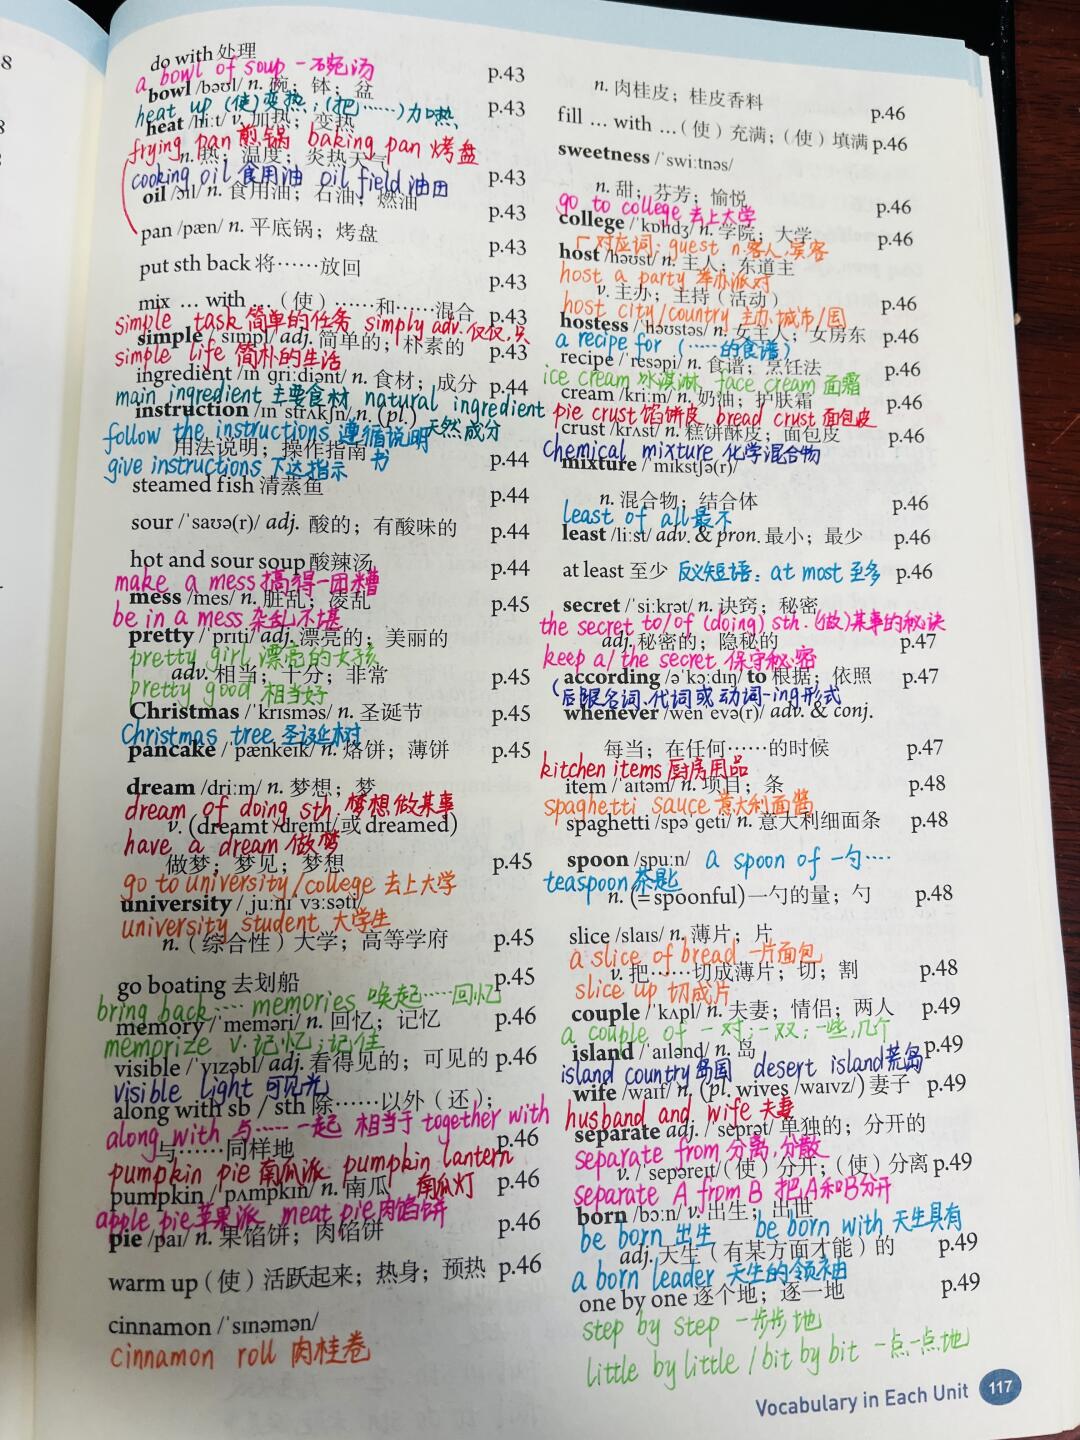 8
8
do with 处理
a bowl of soup 一碗汤 p.43
bowl /bəʊl/ n. 碗；钵；盆
heat up (使)变热；(把……)加热 p.43
heat /hiːt/ v. 加热；变热
frying pan 煎锅 baking pan 烤盘
n. 热；温度；炎热天气
cooking oil 食用油 oil field 油田 p.43
oil /ɔɪl/ n. 食用油；石油；燃油 p.43
pan /pæn/ n. 平底锅；烤盘 p.43
put sth back 将……放回 p.43
mix … with …（使）……和……混合 p.43
simple task 简单的任务 simply adv. 仅仅,只
simple /ˈsɪmpl/ adj. 简单的；朴素的 p.43
simple life 简朴的生活
ingredient /ɪnˈɡriːdiənt/ n. 食材；成分 p.44
main ingredient 主要食材 natural ingredient 天然成分
instruction /ɪnˈstrʌkʃn/ n. (pl.)
follow the instructions 遵循说明书
用法说明；操作指南 p.44
give instructions 下达指示
steamed fish 清蒸鱼 p.44
sour /ˈsaʊə(r)/ adj. 酸的；有酸味的 p.44
hot and sour soup 酸辣汤 p.44
make a mess 搞得一团糟
mess /mes/ n. 脏乱；凌乱 p.45
be in a mess 杂乱不堪
pretty /ˈprɪti/ adj. 漂亮的；美丽的
pretty girl 漂亮的女孩
adv. 相当；十分；非常 p.45
pretty good 相当好
Christmas /ˈkrɪsməs/ n. 圣诞节 p.45
Christmas tree 圣诞树
pancake /ˈpænkeɪk/ n. 烙饼；薄饼 p.45
dream /driːm/ n. 梦想；梦
dream of doing sth. 梦想做某事
v. (dreamt /dremt/或 dreamed)
have a dream 做梦
做梦；梦见；梦想 p.45
go to university/college 去上大学
university /ˌjuːnɪˈvɜːsəti/
university student 大学生
n.（综合性）大学；高等学府 p.45
go boating 去划船 p.45
bring back …… memories 唤起……回忆
memory /ˈmeməri/ n. 回忆；记忆 p.46
memorize v. 记忆；记住
visible /ˈvɪzəbl/ adj. 看得见的；可见的 p.46
visible light 可见光
along with sb / sth 除……以外（还）；
along with 与……一起 相当于 together with
与……同样地 p.46
pumpkin pie 南瓜派 pumpkin lantern 南瓜灯
pumpkin /ˈpʌmpkɪn/ n. 南瓜 p.46
apple pie 苹果派 meat pie 肉馅饼
pie /paɪ/ n. 果馅饼；肉馅饼 p.46
warm up（使）活跃起来；热身；预热 p.46
cinnamon /ˈsɪnəmən/
cinnamon roll 肉桂卷
n. 肉桂皮；桂皮香料 p.46
fill … with …（使）充满；（使）填满 p.46
sweetness /ˈswiːtnəs/
n. 甜；芬芳；愉悦 p.46
go to college 去上大学
college /ˈkɒlɪdʒ/ n. 学院；大学 p.46
对应词：guest n.客人,宾客
host /həʊst/ n. 主人；东道主
host a party 举办派对
v. 主办；主持（活动） p.46
host city/country 主办城市/国
hostess /ˈhəʊstəs/ n. 女主人；女房东 p.46
a recipe for (……的食谱)
recipe /ˈresəpi/ n. 食谱；烹饪法 p.46
ice cream 冰淇淋 face cream 面霜
cream /kriːm/ n. 奶油；护肤霜 p.46
pie crust 馅饼皮 bread crust 面包皮
crust /krʌst/ n. 糕饼酥皮；面包皮 p.46
chemical mixture 化学混合物
mixture /ˈmɪkstʃə(r)/
n. 混合物；结合体 p.46
least of all 最不
least /liːst/ adv. & pron. 最小；最少 p.46
at least 至少 反义短语：at most 至多 p.46
secret /ˈsiːkrət/ n. 诀窍；秘密
the secret to/of (doing) sth. (做)某事的秘诀
adj. 秘密的；隐秘的 p.47
keep a/the secret 保守秘密
according /əˈkɔːdɪŋ/ to 根据；依照 p.47
(后跟名词,代词或动词-ing形式
whenever /wenˈevə(r)/ adv. & conj.
每当；在任何……的时候 p.47
kitchen items 厨房用品
item /ˈaɪtəm/ n. 项目；条 p.48
spaghetti sauce 意大利面酱
spaghetti /spəˈɡeti/ n. 意大利细面条 p.48
spoon /spuːn/ a spoon of 一勺……
teaspoon 茶匙
n. (= spoonful) 一勺的量；勺 p.48
slice /slaɪs/ n. 薄片；片
a slice of bread 一片面包
v. 把……切成薄片；切；割 p.48
slice up 切成片
couple /ˈkʌpl/ n. 夫妻；情侣；两人 p.49
a couple of 一对；一双；一些,几个
island /ˈaɪlənd/ n. 岛 p.49
island country 岛国 desert island 荒岛
wife /waɪf/ n. (pl. wives /waɪvz/) 妻子 p.49
husband and wife 夫妻
separate adj. /ˈseprət/ 单独的；分开的
separate from 分离,分散
v. /ˈsepəreɪt/（使）分开；（使）分离 p.49
separate A from B 把A和B分开
born /bɔːn/ v. 出生；出世
be born 出生 be born with 天生具有
adj. 天生（有某方面才能）的 p.49
a born leader 天生的领袖
one by one 逐个地；逐一地 p.49
step by step 一步步地
little by little / bit by bit 一点一点地
Vocabulary in Each Unit 117